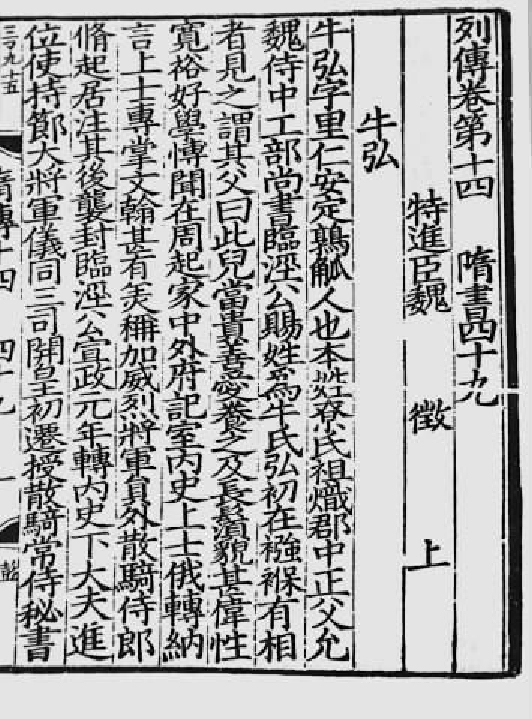 列傳卷第十四 隋書四十九
特進臣魏 徵 上
牛弘
牛弘字里仁安定鶉觚人也本姓尞氏祖熾郡中正父允
魏侍中工部尚書臨涇公賜姓爲牛氏弘初在襁褓有相
者見之謂其父曰此兒當貴善愛養之及長鬚貌甚偉性
寬裕好學慱聞在周起家中外府記室内史上士俄轉納
言上士專掌文翰甚有羙稱加威烈將軍貟外散騎侍郎
脩起居注其後襲封臨涇公宣政元年轉内史下大夫進
位使持節大將軍儀同三司開皇初遷授散騎常侍秘書
三百九十五 隋傳十四 四十九 一 彭